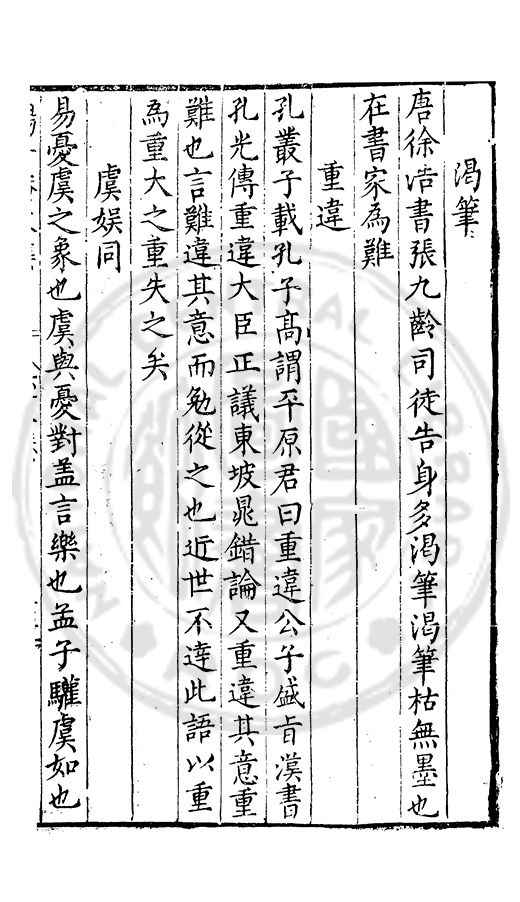 渴筆
唐徐浩書張九齡司徒告身多渴筆渴筆枯無墨也
在書家為難
重違
孔叢子載孔子高謂平原君曰重違公子盛旨漢書
孔光傳重違大臣正議東坡鼂錯論又重違其意重
難也言難違其意而勉從之也近世不達此語以重
為重大之重失之矣
虞娱同
易憂虞之象也虞與憂對盖言樂也孟子驩虞如也